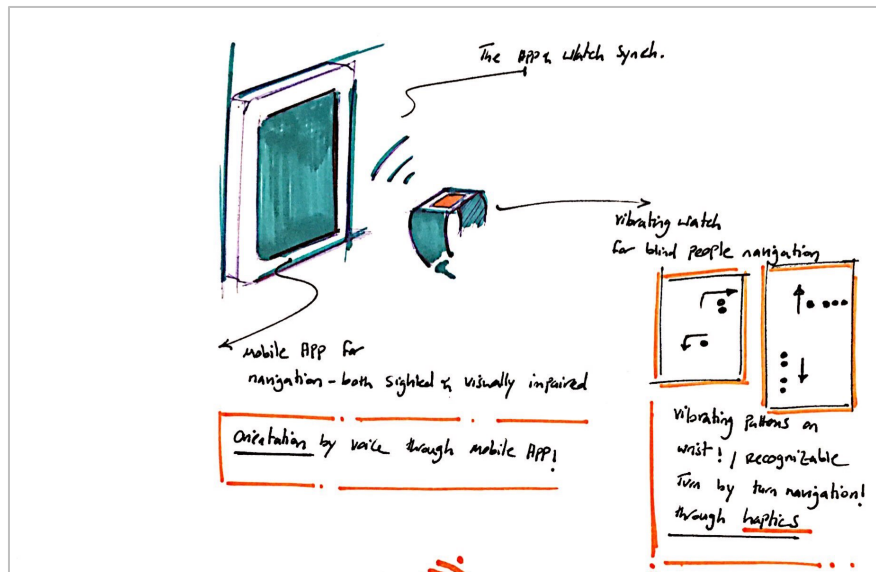 The App & Watch Synch.
vibrating watch
for blind people navigation
Mobile App for
navigation - both sighted & visually impaired
Orientation by voice through Mobile App!
vibrating patterns on
wrist! / recognizable
Turn by turn navigation!
through haptics